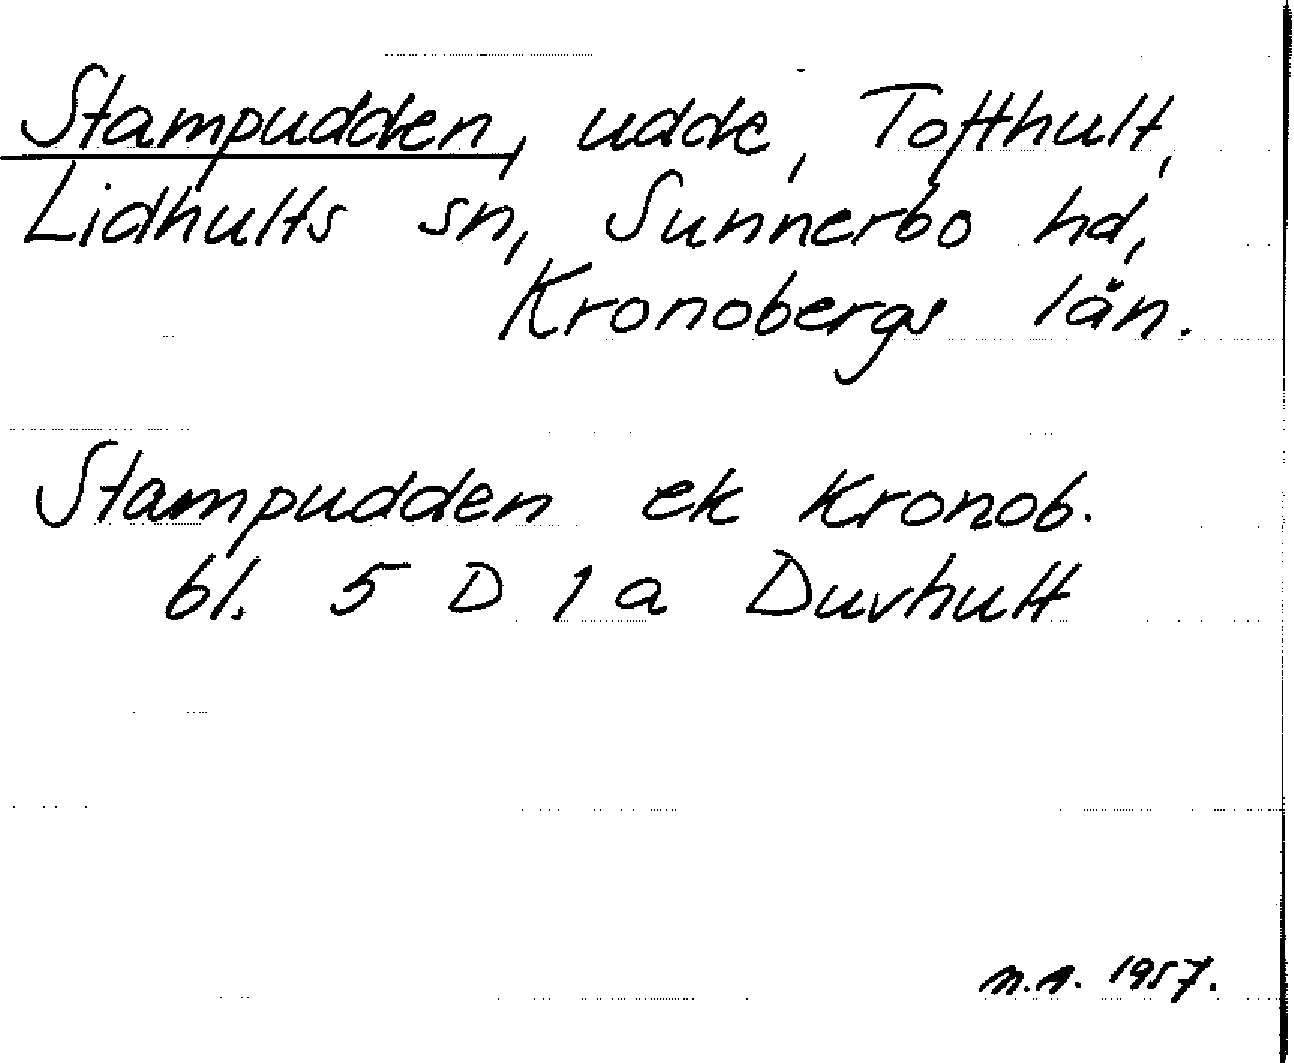 Stampudden, udde, Tofthult,
Lidhults sn, Sunnerbo hd,
Kronobergs län.
Stampudden ek Kronob.
bl. 5 D 1 a Duvhult
M.A. 1957.